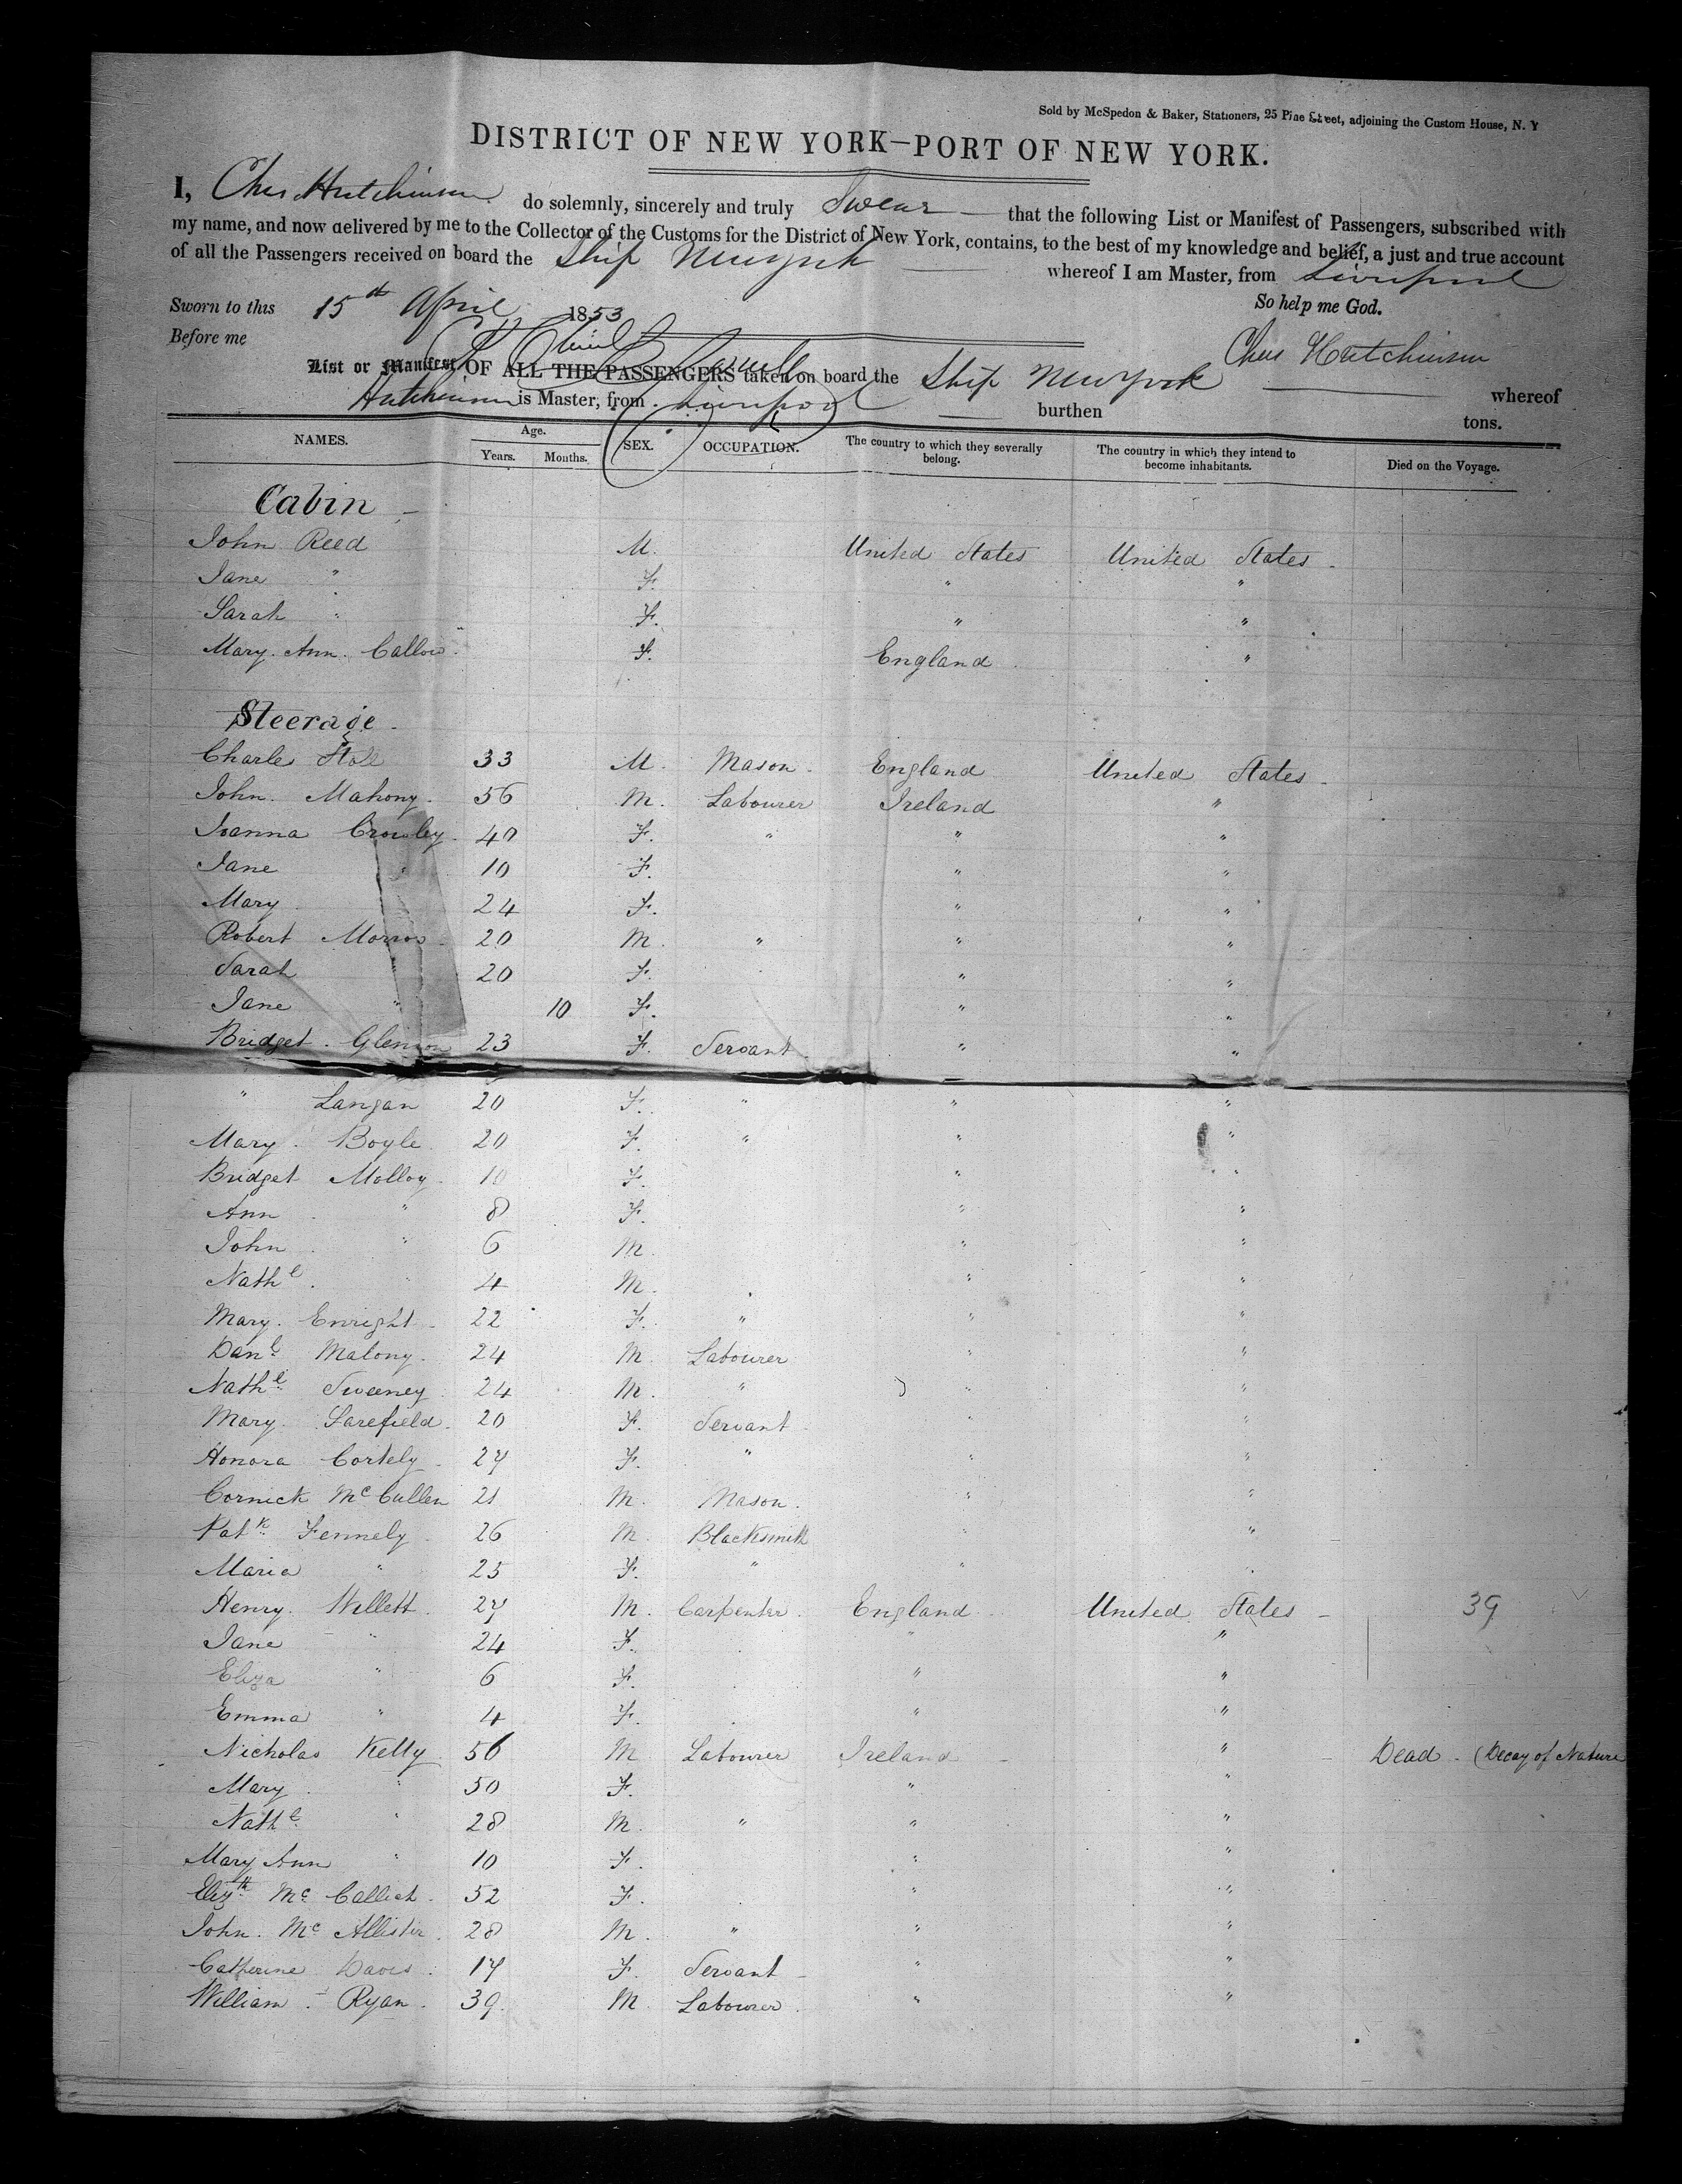 Sold by McSpedon & Baker, Stationers, 25 Pine Street, adjoining the Custom House, N. Y
DISTRICT OF NEW YORK—PORT OF NEW YORK.
I, Chas Hutchinson do solemnly, sincerely and truly Swear — that the following List or Manifest of Passengers, subscribed with
my name, and now delivered by me to the Collector of the Customs for the District of New York, contains, to the best of my knowledge and belief, a just and true account
of all the Passengers received on board the Ship New York — whereof I am Master, from Liverpool
Sworn to this 15th April 1853 So help me God.
Before me Chas Hutchinson
List or Manifest OF ALL THE PASSENGERS taken on board the Ship New York — whereof
Hutchinson is Master, from Liverpool — burthen tons.
NAMES. Age. Years. Months. SEX. OCCUPATION. The country to which they severally belong. The country in which they intend to become inhabitants. Died on the Voyage.
Cabin -
John Reed M. United States United States -
Jane " F. " "
Sarah " F. " "
Mary. Ann. Callow. F. England "
Steerage -
Charles 33 M. Mason. England United States -
John. Mahony. 56 M. Labourer Ireland "
Joanna Crowley. 40 F. " " "
Jane " 10 F. " "
Mary 24 F. " "
Robert Morrow. 20 M. " " "
Sarah " 20 F. " "
Jane " 10 F. " "
Bridget. 23 F. Servant. " "
" Langan 20 F. " " "
Mary. Boyle. 20 F. " " "
Bridget Molloy. 10 F. " "
Ann " 8 F. " "
John " 6 M. " "
Nathl. " 4 M. " "
Mary. Enright. 22 F. " " "
Danl. Malony. 24 M. Labourer " "
Nathl. Sweeney. 24 M. " " "
Mary. Sarefield. 20 F. Servant " "
Honora Cortely. 27 F. " " "
Cornick Mc Cullen 21 M. Mason. " "
Patk. Fennely. 26 M. Blacksmith " "
Maria " 25 F. " " "
Henry. Willett. 27 M. Carpenter. England United States - 39
Jane " 24 F. " "
Eliza " 6 F. " "
Emma " 4 F. " "
Nicholas Kelly. 56 M Labourer Ireland - " Dead - (Decay of Nature
Mary. " 50 F. " "
Nathl. " 28 M. " " "
Mary Ann " 10 F. " "
Elizth. Mc 52 F. " "
John. Mc Allister. 28 M. " " "
Catherine Davis. 17 F. Servant - " "
William. Ryan. 39. M Labourer. " "